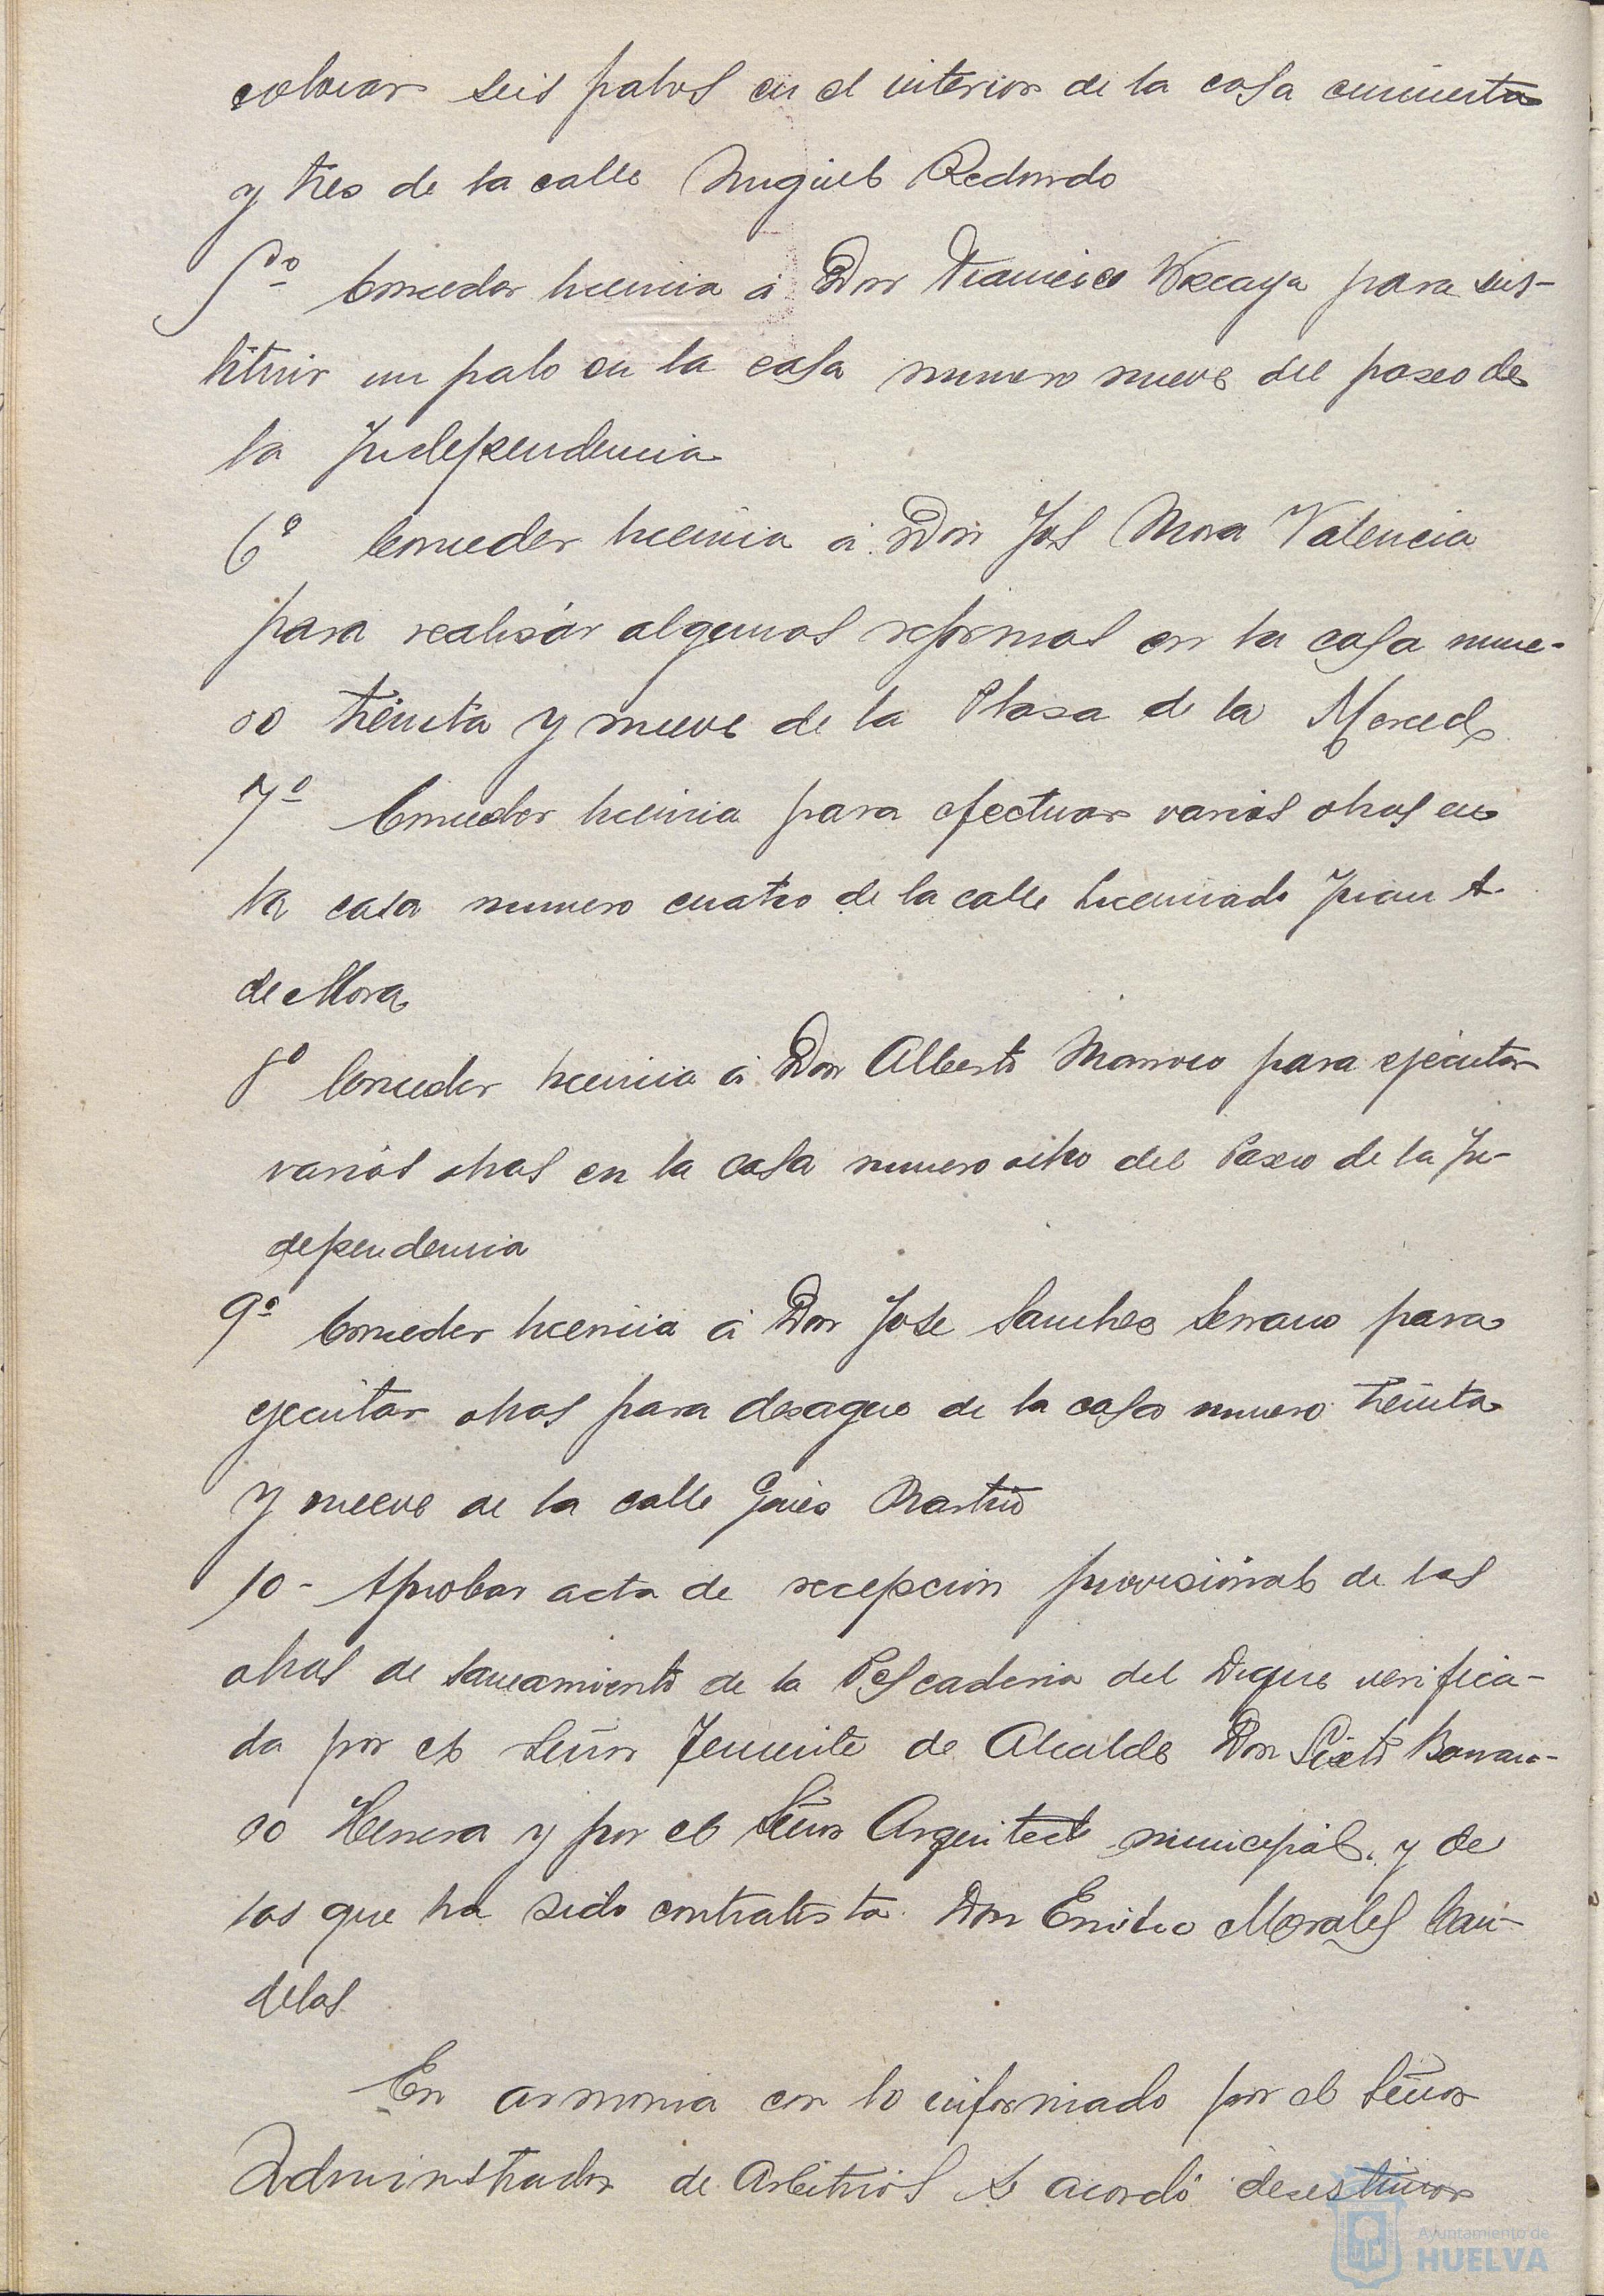 colocar seis palos en el interior de la casa cincuenta
y tres de la calle Miguel Redondo
5º Conceder licencia á Don Francisco Vizcaya para sus-
tituir un palo en la casa numero nueve del paseo de
la Independencia
6º Conceder licencia á Don José Mora Valencia
para realizar algunas reformas en la casa nume-
ro treinta y nueve de la Plaza de la Merced
7º Conceder licencia para efectuar varias obras en
la casa numero cuatro de la calle Licenciado Juan A.
de Mora
8º Conceder licencia á Don Alberto Marroco para ejecutar
varias obras en la casa numero ocho del Paseo de la In-
dependencia
9º Conceder licencia á Don Jose Sanchez Serrano para
ejecutar obras para desague de la casa numero treinta
y nueve de la calle Ginés Martin
10 - Aprobar acta de recepcion provisional de las
obras de saneamiento de la Pescaderia del Dique verifica-
da por el Señor Teniente de Alcalde Don Sixto
ro Herrera y por el Señor Arquitecto municipal, y de
las que ha sido contratista Don Emilio Morales Can-
delas
En armonia con lo informado por el Señor
Administrador de Arbitrios se acordó desestimar
Ayuntamiento de
HUELVA